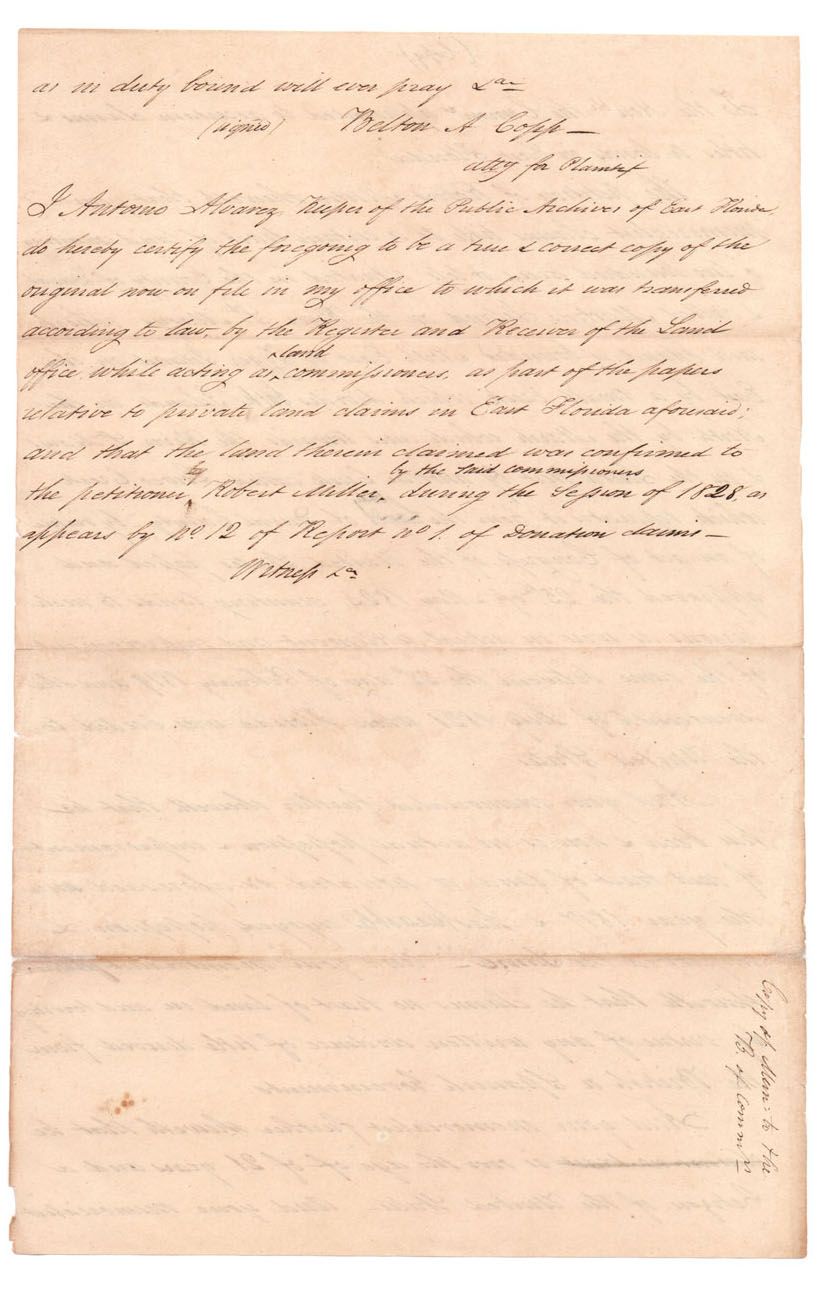 as in duty bound will ever pray &ac
(signed) Belton A Copp —
atty for Plaintif
I Antonio Alvarez, Keeper of the Public Archives of East Florida,
do hereby certify the foregoing to be a true & correct copy of the
original now on file in my office to which it was transferred
according to law, by the Register and Receiver of the Land
office, while acting as ^land commissioners, as part of the papers
relative to private land claims in East Florida aforesaid;
and that the land therein claimed was confirmed to
the petitioner, Robert Miller, ^by the said commissioners during the Session of 1828, as
appears by No. 12 of Report No 1. of Donation claims —
Witness &c
Copy of Mem: to the
B. of Commrs